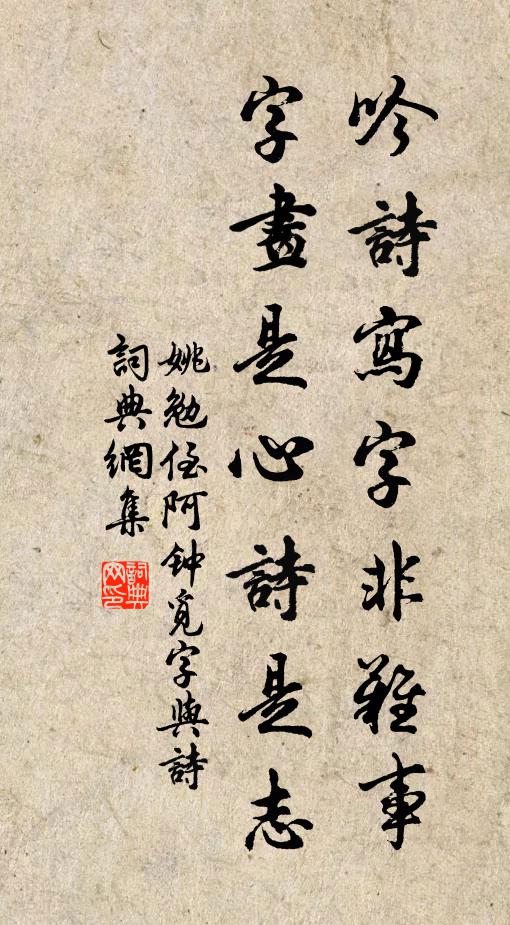 吟詩寫字非難事
字畫是心詩是志
姚勉侄阿钟覓字與詩
詞典網集
詞典网印